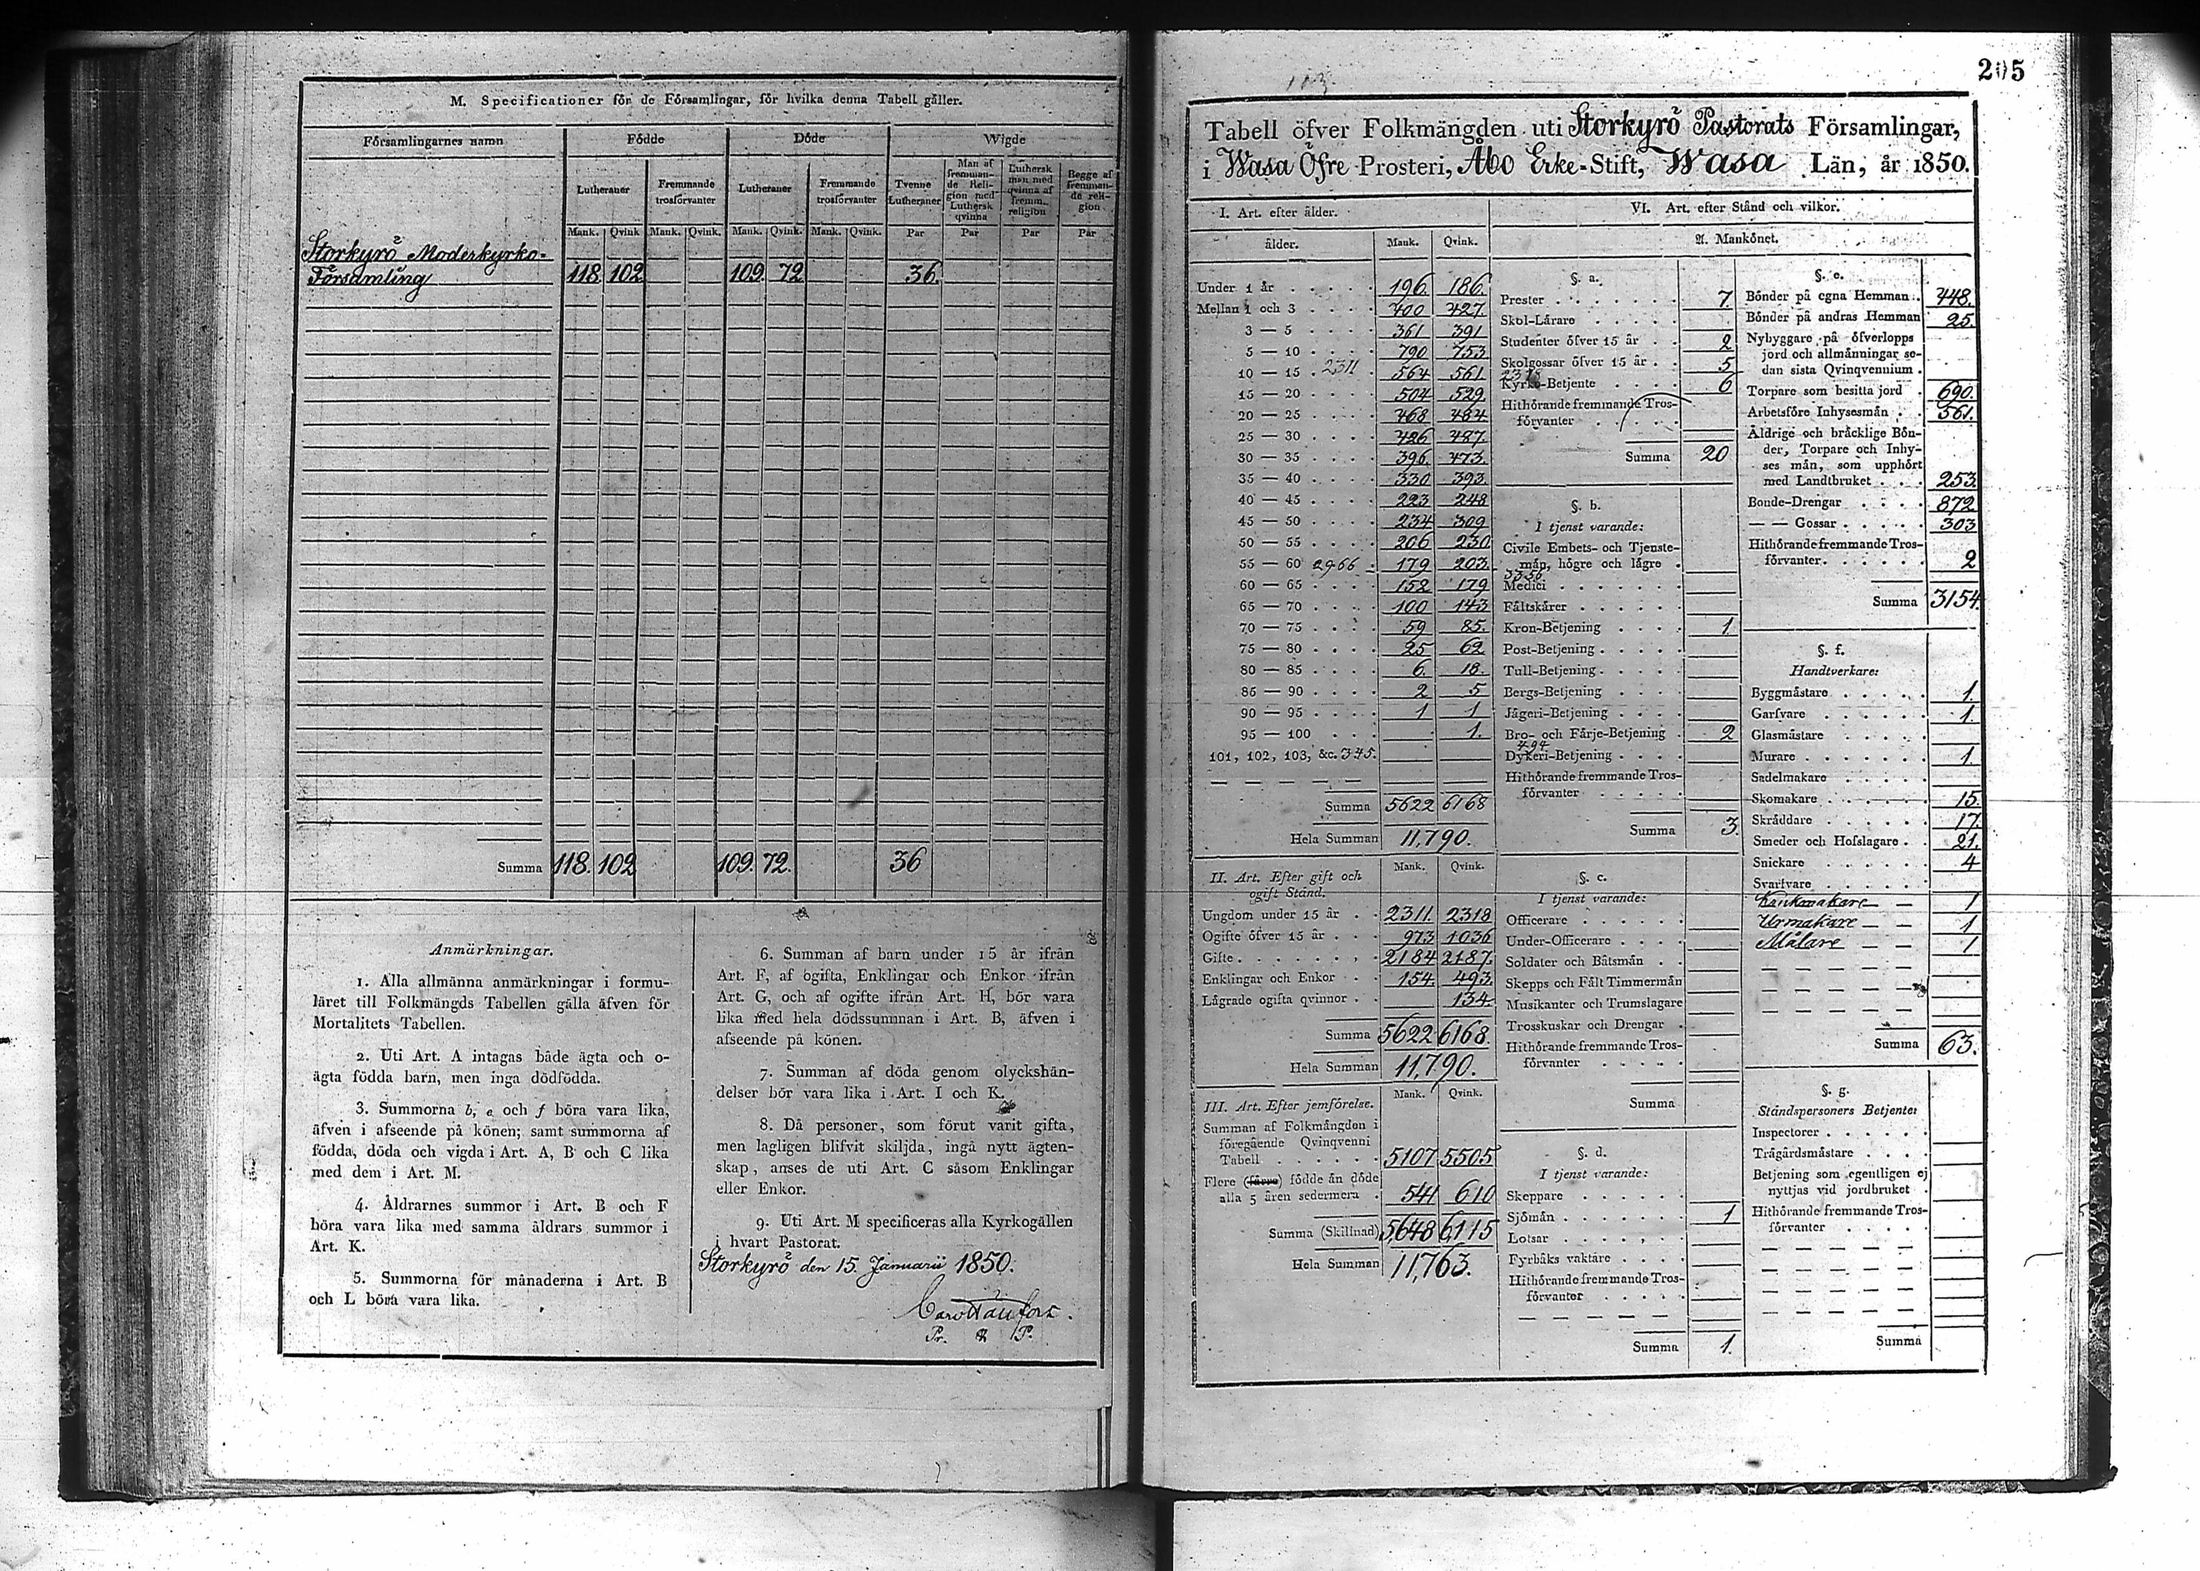 M. Specificationer för de Församlingar, för hvilka denna Tabell gäller.
Församlingarnes namn Födde Döde Wigde
Lutheraner Fremmande trosförvanter Lutheraner Fremmande trosförvanter Tvenne Lutheraner Man af fremmande Religion med Luthersk qvinna Luthersk man med qvinna af fremm. religion Begge af fremmande religion
Mank. Qvink Mank. Qvink. Mank. Qvink. Mank. Qvink. Par Par Par Par
Storkyrö Moderkyrko-
Församling 118 102 109. 72 36.
Summa 118. 102 109. 72. 36
Anmärkningar.
1. Alla allmänna anmärkningar i formu-
läret till Folkmängds Tabellen gälla äfven för
Mortalitets Tabellen.
2. Uti Art. A intagas både ägta och o-
ägta födda barn, men inga dödfödda.
3. Summorna b, e och f böra vara lika,
äfven i afseende på könen; samt summorna af
födda, döda och vigda i Art. A, B och C lika
med dem i Art. M.
4. Åldrarnes summor i Art. B och F
böra vara lika med samma åldrars summor i
Art. K.
5. Summorna för månaderna i Art. B
och L böra vara lika.
6. Summan af barn under 15 år ifrån
Art. F, af ogifta, Enklingar och Enkor ifrån
Art. G, och af ogifte ifrån Art. H, bör vara
lika med hela dödssumman i Art. B, äfven i
afseende på könen.
7. Summan af döda genom olyckshän-
delser bör vara lika i Art. I och K.
8. Då personer, som förut varit gifta,
men lagligen blifvit skiljda, ingå nytt ägten-
skap, anses de uti Art. C såsom Enklingar
eller Enkor.
9. Uti Art. M specificeras alla Kyrkogällen
i hvart Pastorat.
Storkyrö den 15. Januarii 1850.
Pr. & P.
205
Tabell öfver Folkmängden uti Storkyrö Pastorats Församlingar,
i Wasa Öfre Prosteri, Åbo Erke-Stift, Wasa Län, år 1850.
I. Art. efter ålder.
ålder. Mank. Qvink.
Under 1 år 196. 186.
Mellan 1 och 3 400 427.
3 — 5 361 391
5 — 10 790 753
10 — 15 2311 564 561
15 — 20 504 529.
20 — 25 468 484
25 — 30 426 487.
30 — 35 396. 473.
35 — 40 330 393.
40 — 45 223 248
45 — 50 234 309
50 — 55 206 230
55 — 60 2966 179 203.
60 — 65 152 179
65 — 70 100 143
70 — 75 59 85.
75 — 80 25 62
80 — 85 6. 18.
85 — 90 2 5
90 — 95 1 1
95 — 100 1.
101, 102, 103, &c. 345.
Summa 5622 6168
Hela Summan 11,790.
II. Art. Efter gift och ogift Stånd. Mank. Qvink.
Ungdom under 15 år 2311. 2318
Ogifte öfver 15 år 973 1036
Gifte 2184 2187.
Enklingar och Enkor 154. 493.
Lägrade ogifta qvinnor 134.
Summa 5622 6168.
Hela Summan 11,790.
III. Art. Efter jemförelse. Mank. Qvink.
Summan af Folkmängden i
föregående Qvinqvenni
Tabell 5107 5505
Flere (färre) födde än döde
alla 5 åren sedermera 541 610
Summa (Skillnad) 5,648 6,115
Hela Summan 11,763.
VI. Art. efter Stånd och vilkor.
A. Mankönet.
§. a.
Prester 7
Skol-Lärare
Studenter öfver 15 år 2
Skolgossar öfver 15 år 5
Kyrko-Betjente 6
Hithörande fremmande Tros-
förvanter
Summa 20
§. b.
I tjenst varande:
Civile Embets- och Tjenste-
män, högre och lägre
Medici
Fältskärer
Kron-Betjening 1
Post-Betjening
Tull-Betjening
Bergs-Betjening
Jägeri-Betjening
Bro- och Färje-Betjening 2
494
Dykeri-Betjening
Hithörande fremmande Tros-
förvanter
Summa 3.
§. c.
I tjenst varande:
Officerare
Under-Officerare
Soldater och Båtsmän
Skepps och Fält Timmermän
Musikanter och Trumslagare
Trosskuskar och Drengar
Hithörande fremmande Tros-
förvanter
Summa
§. d.
I tjenst varande:
Skeppare
Sjömän 1
Lotsar
Fyrbåks vaktare
Hithörande fremmande Tros-
förvanter
Summa 1.
§. e.
Bönder på egna Hemman 448.
Bönder på andras Hemman 25.
Nybyggare på öfverlopps
jord och allmänningar se-
dan sista Qvinqvennium
Torpare som besitta jord 690.
Arbetsföre Inhysesmän 561.
Åldrige och bräcklige Bön-
der, Torpare och Inhy-
ses män, som upphört
med Landtbruket 253.
Bonde-Drengar 872
— — Gossar 303
Hithörande fremmande Tros-
förvanter 2
Summa 3154.
§. f.
Handtverkare:
Byggmästare 1.
Garfvare 1.
Glasmästare
Murare 1.
Sadelmakare
Skomakare 15.
Skräddare 17.
Smeder och Hofslagare 21.
Snickare 4
Svarfvare
Urmakare 1
Målare 1
Summa 63.
§. g.
Ståndspersoners Betjente:
Inspectorer
Trägårdsmästare
Betjening som egentligen ej
nyttjas vid jordbruket
Hithörande fremmande Tros-
förvanter
Summa